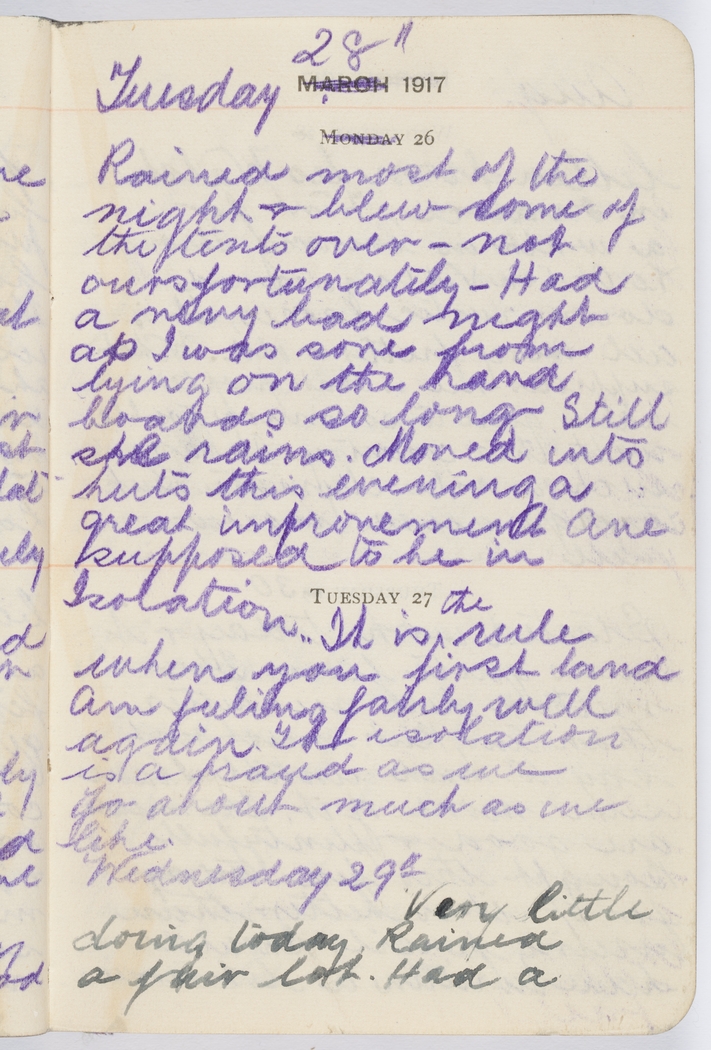 28"
Tuesday MARCH 1917
MONDAY 26
Rained most of the
night & blew some of
the tents over - not
ours fortunately - Had
a very bad night
as I was sore from
lying on the hard
boards so long Still
rains. Moved into
huts this evening a
great improvement Are
supposed to be in
TUESDAY 27
Isolation.. It is the rule
when you first land
Am feling fairly well
again. The isolation
is a fraud as we
go about much as we
like.
Wednesday 29th
Very little
doing today. Rained
a fair lot. Had a